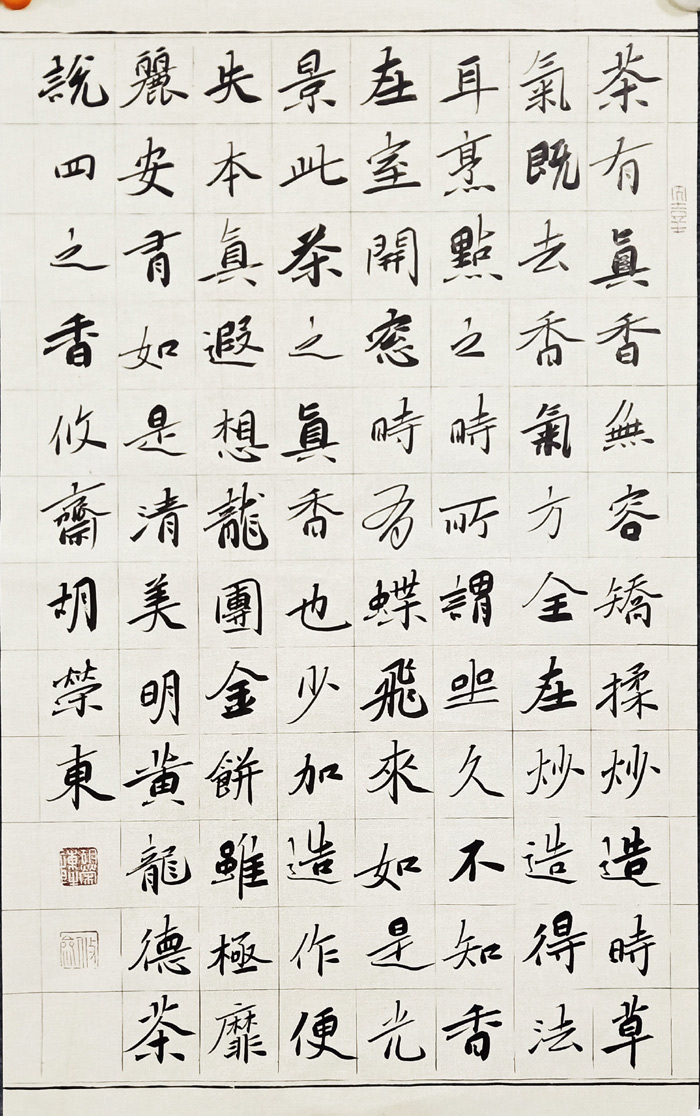 茶有眞香無容矯揉炒造時草
氣既去香氣方全在炒造得法
耳烹點之時所謂坐久不知香
在室開窓時有蝶飛來如是光
景此茶之眞香也少加造作便
失本眞遐想龍團金餅雖極靡
麗安有如是清美明黄龍德茶
說四之香攸齋胡榮東